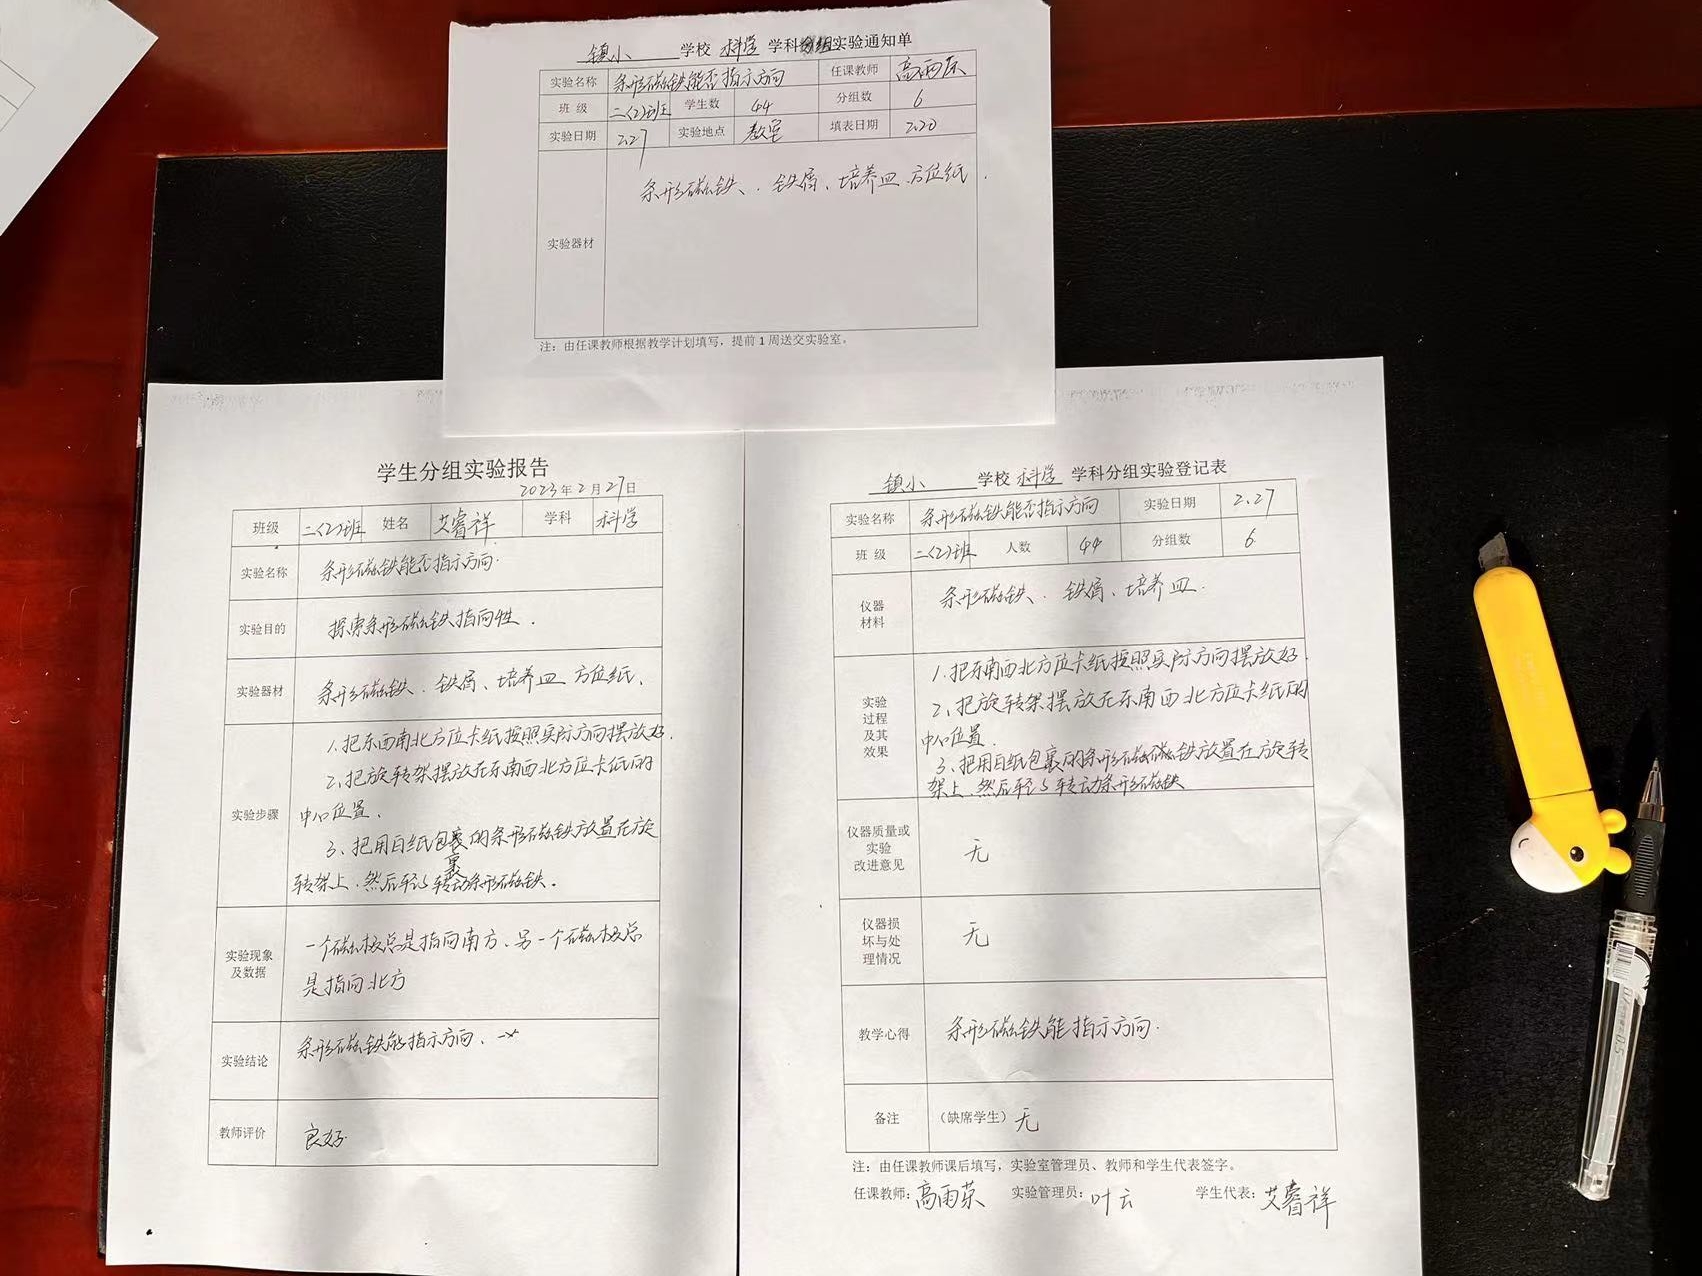 镇小 学校 科学 学科分组实验通知单
实验名称 条形磁铁能否指示方向 任课教师
班 级 二(2)班 学生数 44 分组数 6
实验日期 2.27 实验地点 教室 填表日期 2.20
实验器材 条形磁铁、铁屑、培养皿、方位纸.
注：由任课教师根据教学计划填写，提前1周送交实验室。
学生分组实验报告
2023年2月27日
班级 二(2)班 姓名 艾睿祥 学科 科学
实验名称 条形磁铁能否指示方向.
实验目的 探索条形磁铁指向性.
实验器材 条形磁铁、铁屑、培养皿 方位纸、
实验步骤
1、把东西南北方位卡纸按照实际方向摆放好.
2、把旋转架摆放在东南西北方位卡纸的
中心位置.
3、把用白纸包裹的条形磁铁放置在旋
转架上.然后轻轻转动条形磁铁.
实验现象及数据
一个磁极总是指向南方、另一个磁极总
是指向北方
实验结论 条形磁铁能指示方向.
教师评价 良好.
镇小 学校 科学 学科分组实验登记表
实验名称 条形磁铁能否指示方向 实验日期 2.27
班 级 二(2)班 人数 44 分组数 6
仪器
材料
条形磁铁、铁屑、培养皿.
实验
过程
及其
效果
1.把东南西北方位卡纸按照实际方向摆放好.
2、把旋转架摆放在东南西北方位卡纸的
中心位置.
3、把用白纸包裹的条形磁铁放置在旋转
架上.然后轻轻转动条形磁铁
仪器质量或
实验
改进意见
无
仪器损
坏与处
理情况
无
教学心得 条形磁铁能指示方向.
备注 (缺席学生) 无
注：由任课教师课后填写，实验室管理员、教师和学生代表签字。
任课教师: 高雨荣 实验管理员: 叶云 学生代表: 艾睿祥
0.5